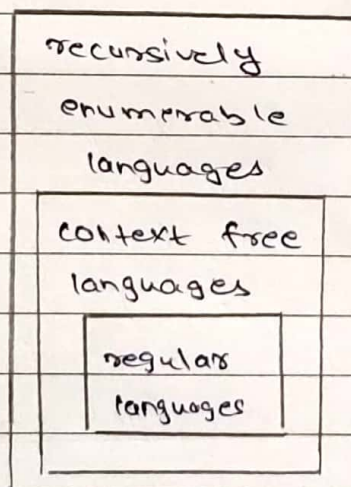 recursively
enumerable
languages
context free
languages
regular
languages